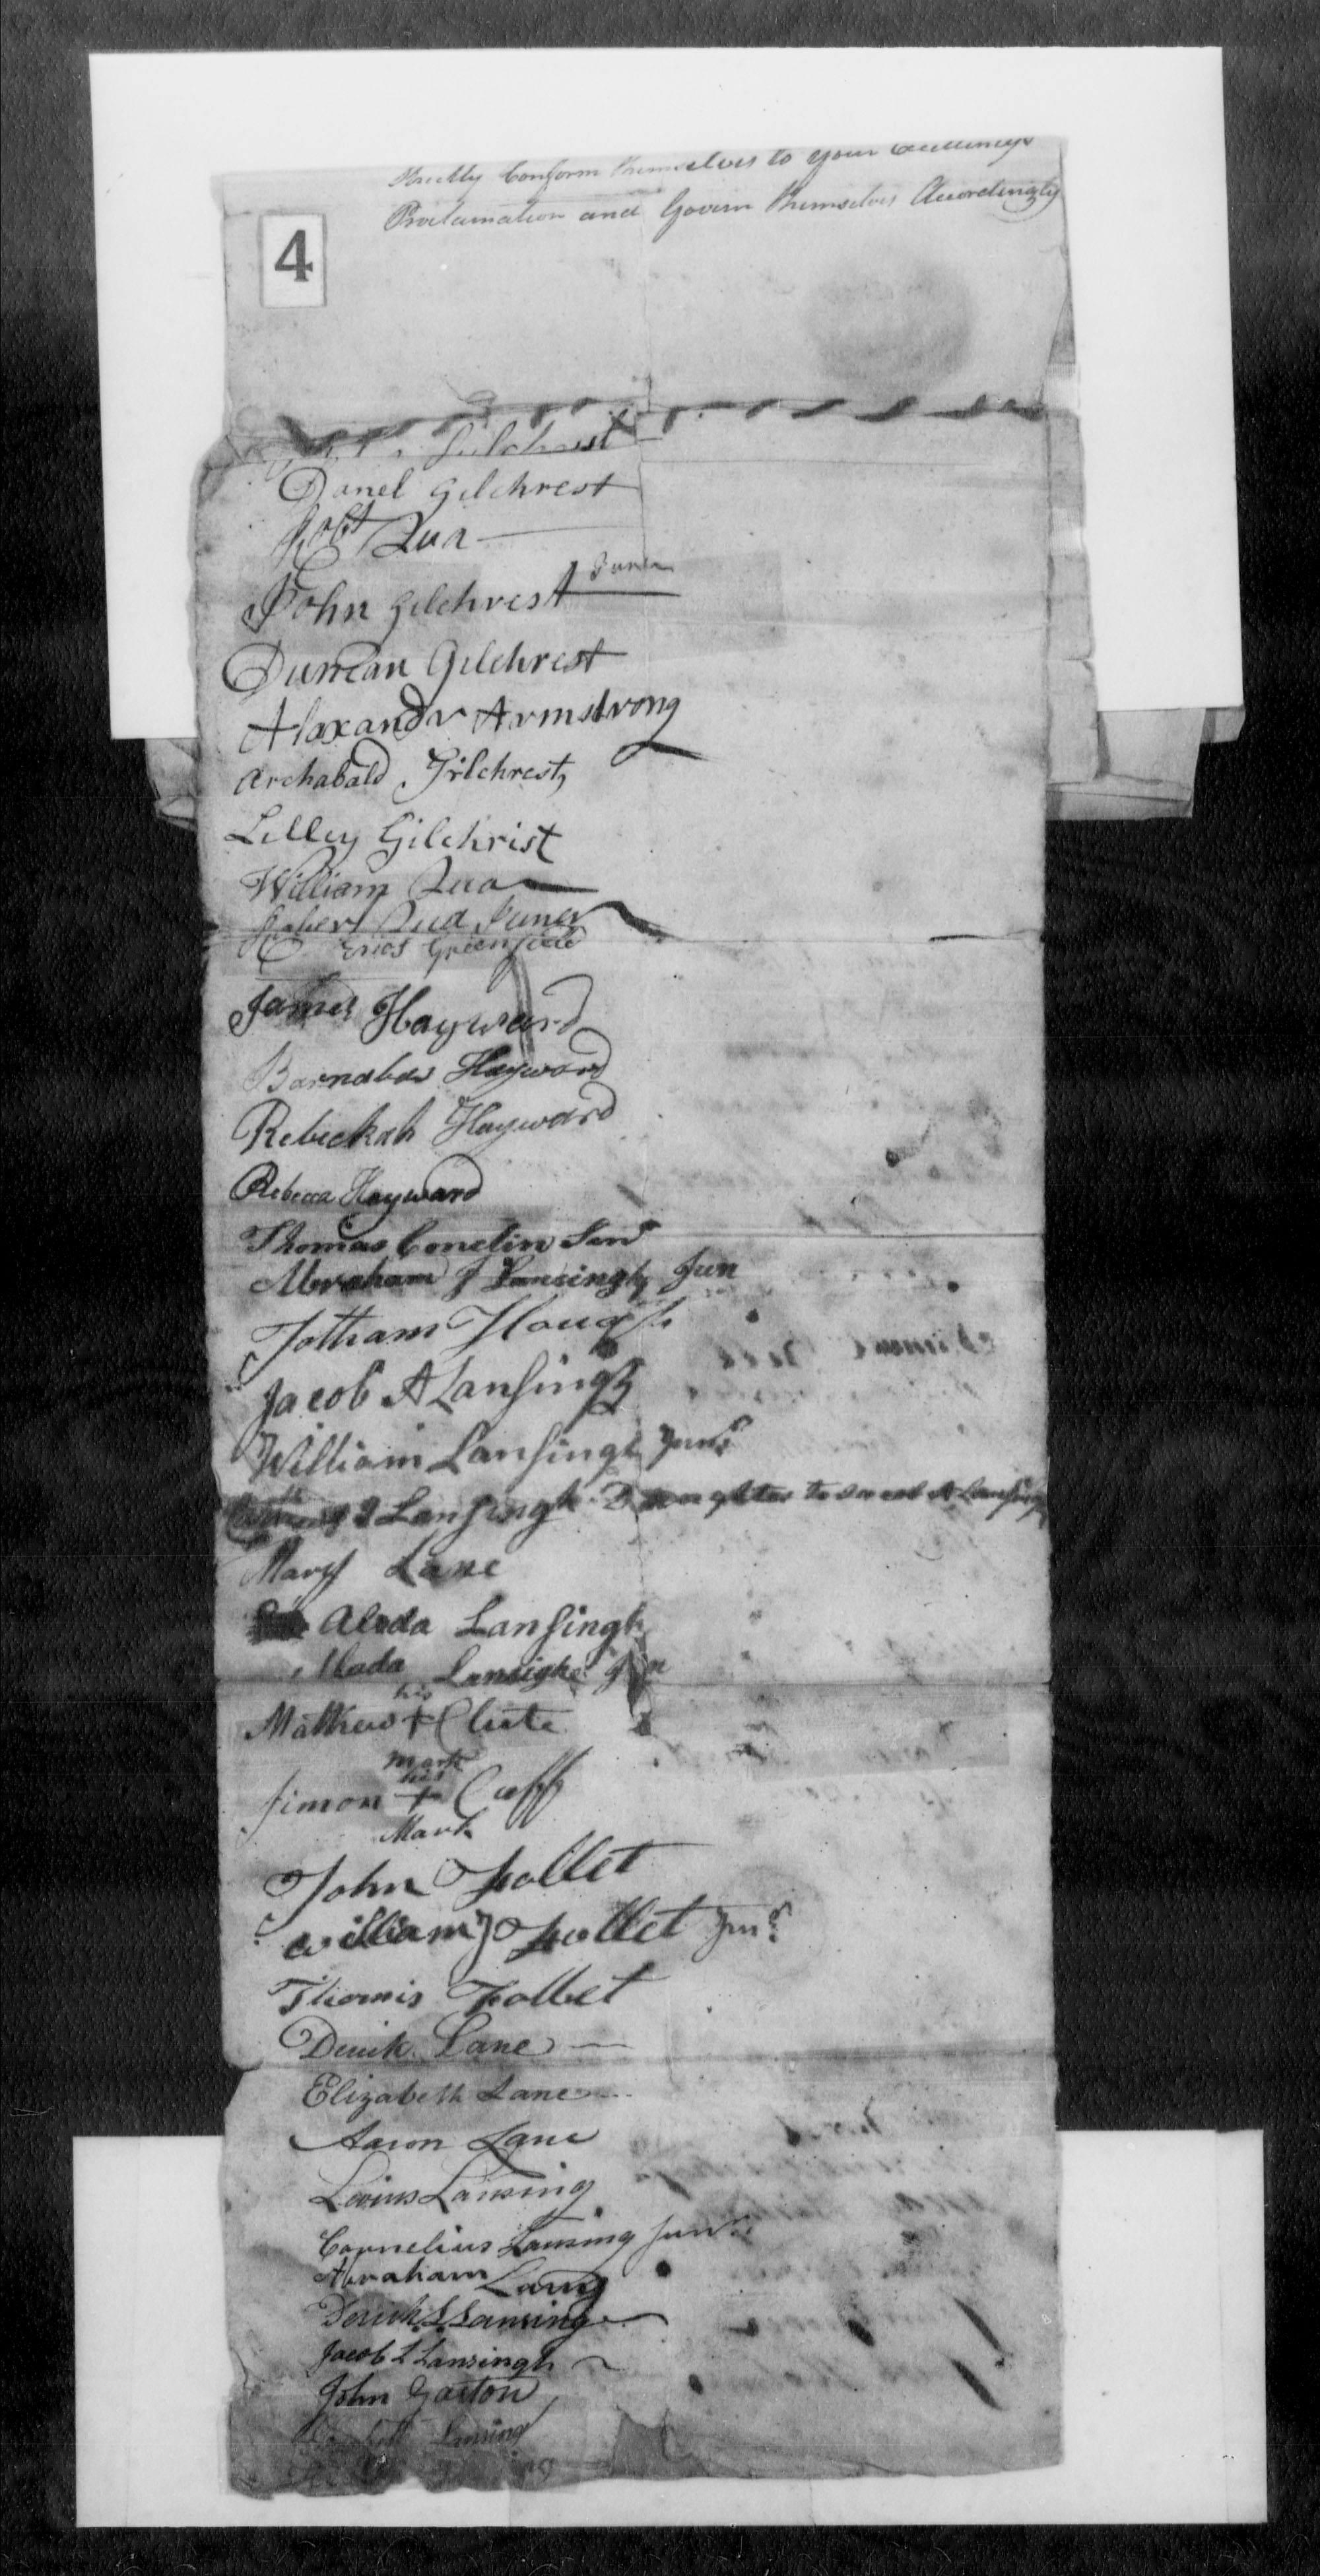 Strictly Conform themselves to your Excellencys
Proclamation and Govern themselves Accordingly
4
Gilchrest
Danel Gilchrest
Robt Qua
John Gilchrest Juner
Duncan Gilchrest
Alaxandr Armstrong
Archabald Gilchrest
Lilley Gilchrist
William Qua
Robert Qua Juner
Enos Greenfield
James Hayward
Barnabas Hayward
Rebeckah Hayward
Rebecca Hayward
Thomas Conclin Senr
Abraham J Lansingh Jun
Jotham Hough
Jacob A Lansingh
William Lansingh Junr
Lansingh Daughter to Jacob A Lansingh
Mary Lane
Aleda Lansingh
Lansighe
his
Mathew + Clute
mark
his
Simon + Cuff
Mark
John Follet
William J Follet Junr
Thomis Follet
Derick Lane
Elizabeth Lane
Aaron Lane
Levinus Lansing
Cornelius Lansing Junr
Abraham Lansing
Derick L Lansing
Jacob L Lansingh
John Gaston
Lansing